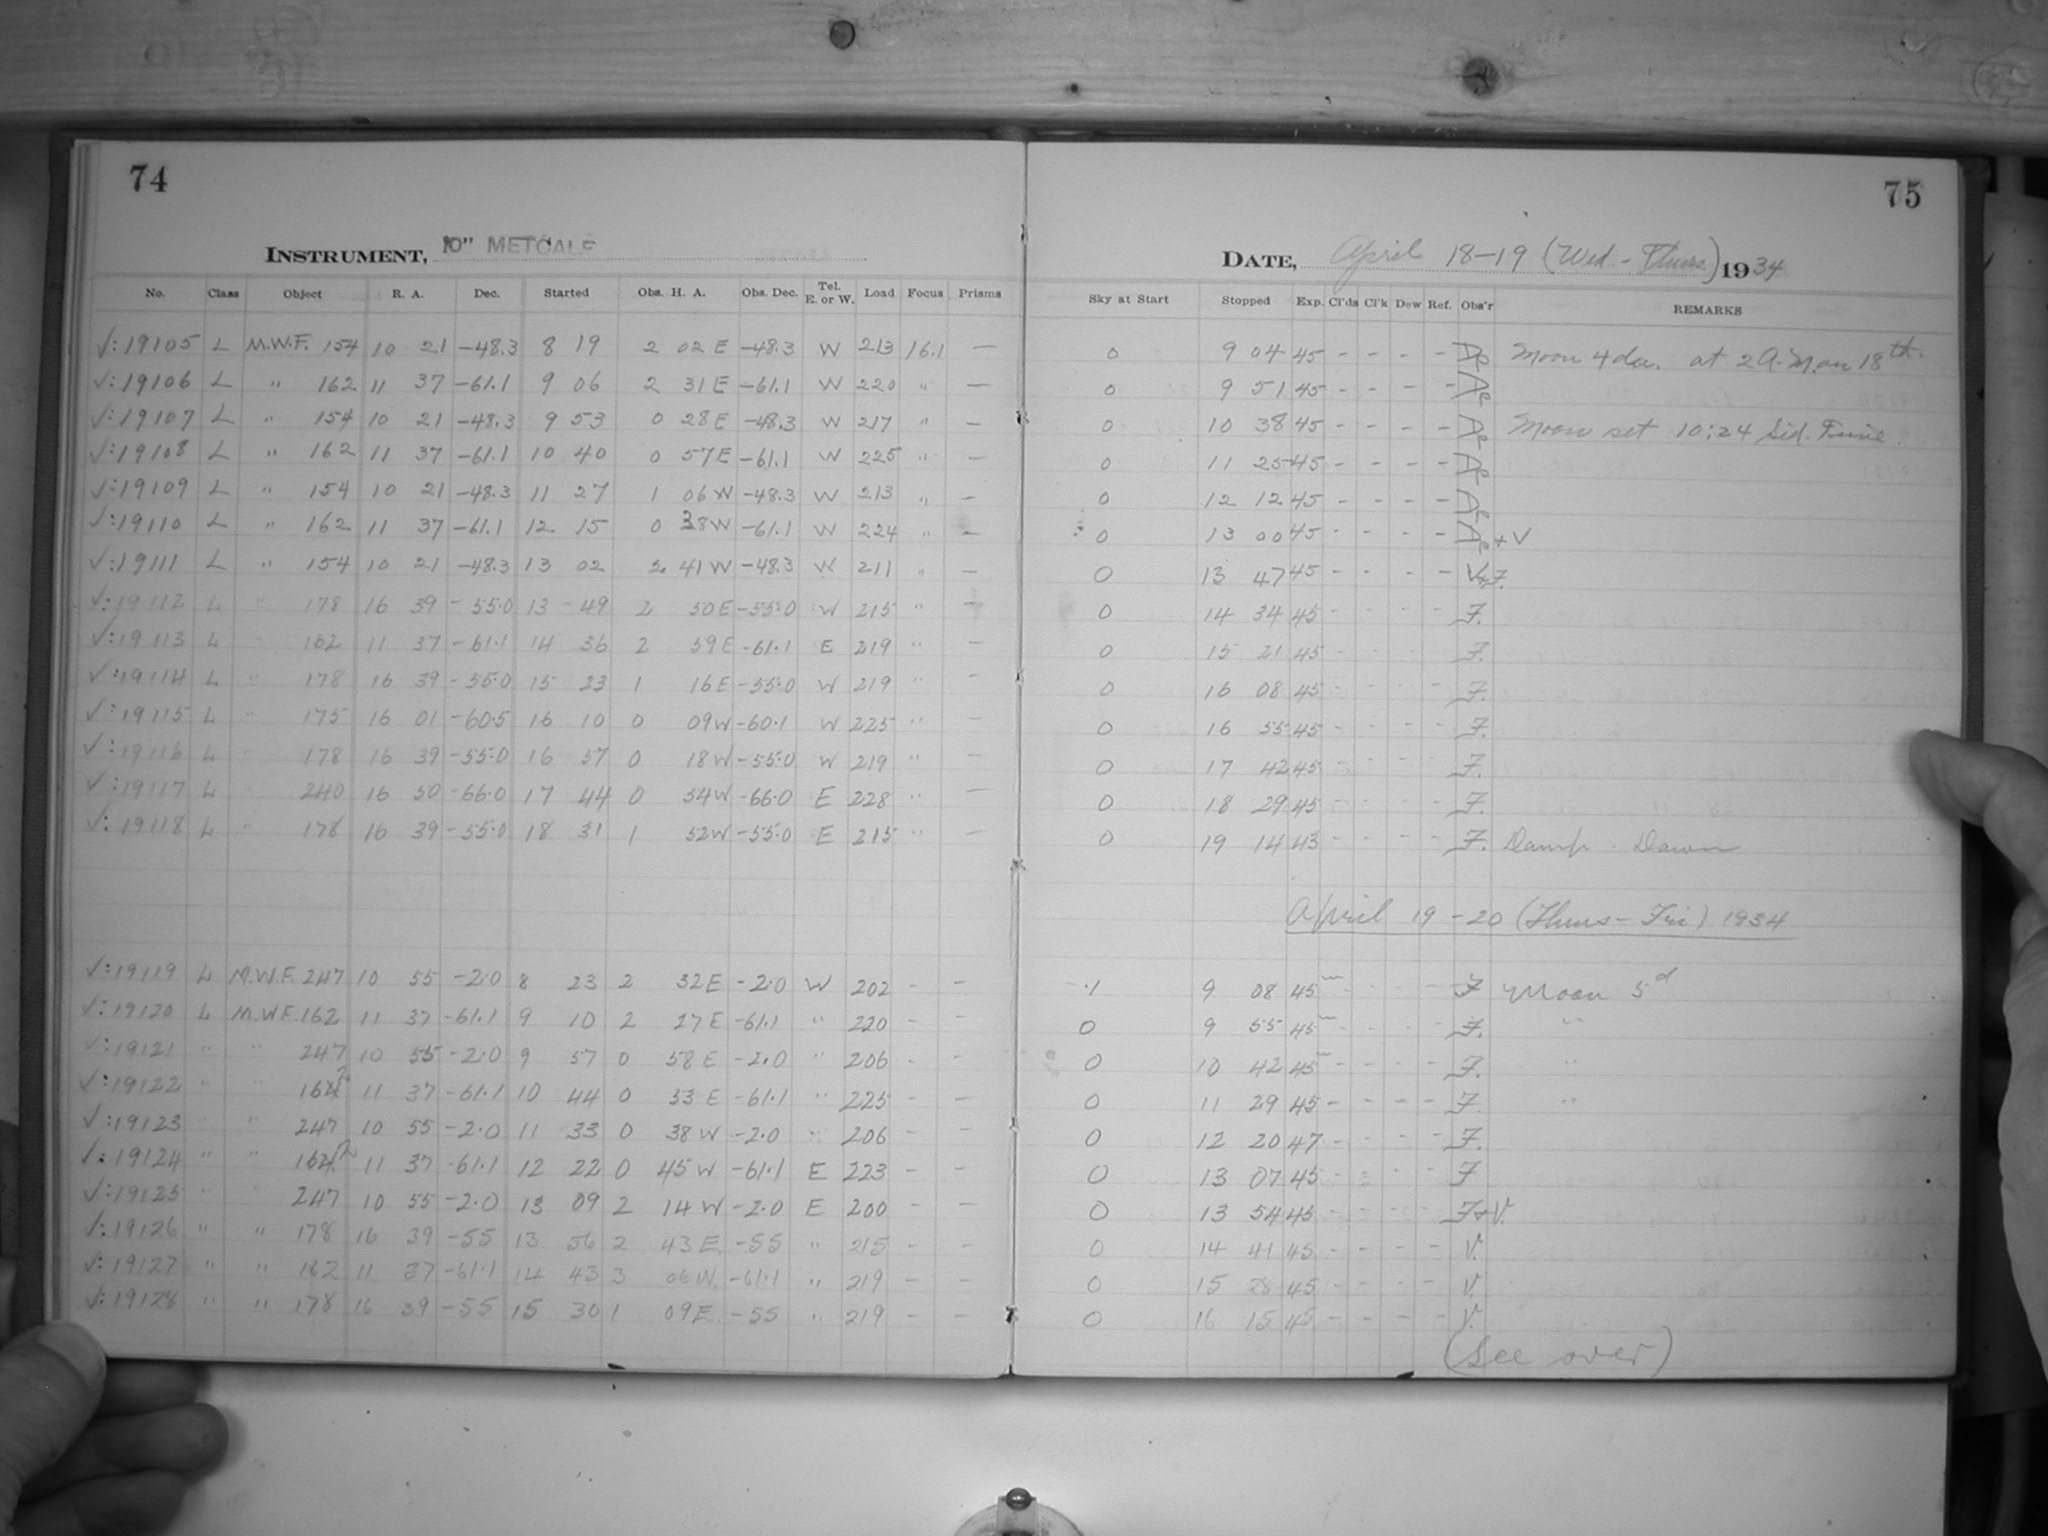 74
INSTRUMENT, 10" METCALF
No. Class Object R. A. Dec. Started Obs. H. A. Obs. Dec. Tel. E. or W. Load Focus Prisms
√:19105 L M.W.F. 154 10 21 -48.3 8 19 2 02 E -48.3 W 213 16.1 —
√:19106 L " 162 11 37 -61.1 9 06 2 31 E -61.1 W 220 " —
√:19107 L " 154 10 21 -48.3 9 53 0 28 E -48.3 W 217 " —
√:19108 L " 162 11 37 -61.1 10 40 0 57 E -61.1 W 225 " —
√:19109 L " 154 10 21 -48.3 11 27 1 06 W -48.3 W 213 " —
√:19110 L " 162 11 37 -61.1 12 15 0 38 W -61.1 W 224 " —
√:19111 L " 154 10 21 -48.3 13 02 2 41 W -48.3 W 211 " —
√:19112 L " 178 16 39 -55.0 13 49 2 50 E -55.0 W 215 " —
√:19113 L " 162 11 37 -61.1 14 36 2 59 E -61.1 E 219 " —
√:19114 L " 178 16 39 -55.0 15 23 1 16 E -55.0 W 219 " —
√:19115 L " 175 16 01 -60.5 16 10 0 09 W -60.1 W 225 " —
√:19116 L " 178 16 39 -55.0 16 57 0 18 W -55.0 W 219 " —
√:19117 L " 240 16 50 -66.0 17 44 0 54 W -66.0 E 228 " —
√:19118 L " 178 16 39 -55.0 18 31 1 52 W -55.0 E 215 " —
√:19119 L M.W.F. 247 10 55 -2.0 8 23 2 32 E -2.0 W 202 - -
√:19120 L M.W.F. 162 11 37 -61.1 9 10 2 27 E -61.1 " 220 - -
√:19121 " " 247 10 55 -2.0 9 57 0 58 E -2.0 " 206 - -
√:19122 " " 162 11 37 -61.1 10 44 0 53 E -61.1 " 225 - -
√:19123 " " 247 10 55 -2.0 11 33 0 38 W -2.0 " 206 - -
√:19124 " " 162 11 37 -61.1 12 22 0 45 W -61.1 E 223 - -
√:19125 " " 247 10 55 -2.0 13 09 2 14 W -2.0 E 200 - -
√:19126 " " 178 16 39 -55 13 56 2 43 E. -55 " 215 - -
√:19127 " " 162 11 37 -61.1 14 43 3 06 W. -61.1 " 219 - -
√:19128 " " 178 16 39 -55 15 30 1 09 E. -55 " 219 - -
75
DATE, April 18-19 (Wed.-Thurs.) 1934
Sky at Start Stopped Exp. Cl'ds Cl'k Dew Ref. Obs'r REMARKS
0 9 04 45 - - - - Moon 4da. at 2 A.M. on 18th.
0 9 51 45 - - - -
0 10 38 45 - - - - Moon set 10:24 Sid. Time.
0 11 25 45 - - - -
0 12 12 45 - - - -
0 13 00 45 - - - - + V
0 13 47 45 - - - - V+F.
0 14 34 45 - - - - F.
0 15 21 45 - - - - F.
0 16 08 45 - - - - F.
0 16 55 45 - - - - F.
0 17 42 45 - - - - F.
0 18 29 45 - - - - F.
0 19 14 43 - - - - F. Damp. Dawn
April 19-20 (Thurs-Fri) 1934
.1 9 08 45 - - - - F Moon 5d
0 9 55 45 - - - - F. "
0 10 42 45 - - - - F. "
0 11 29 45 - - - - F. "
0 12 20 47 - - - - F.
0 13 07 45 - - - - F
0 13 54 45 - - - - F+V.
0 14 41 45 - - - - V.
0 15 28 45 - - - - V.
0 16 15 45 - - - - V.
(See over)